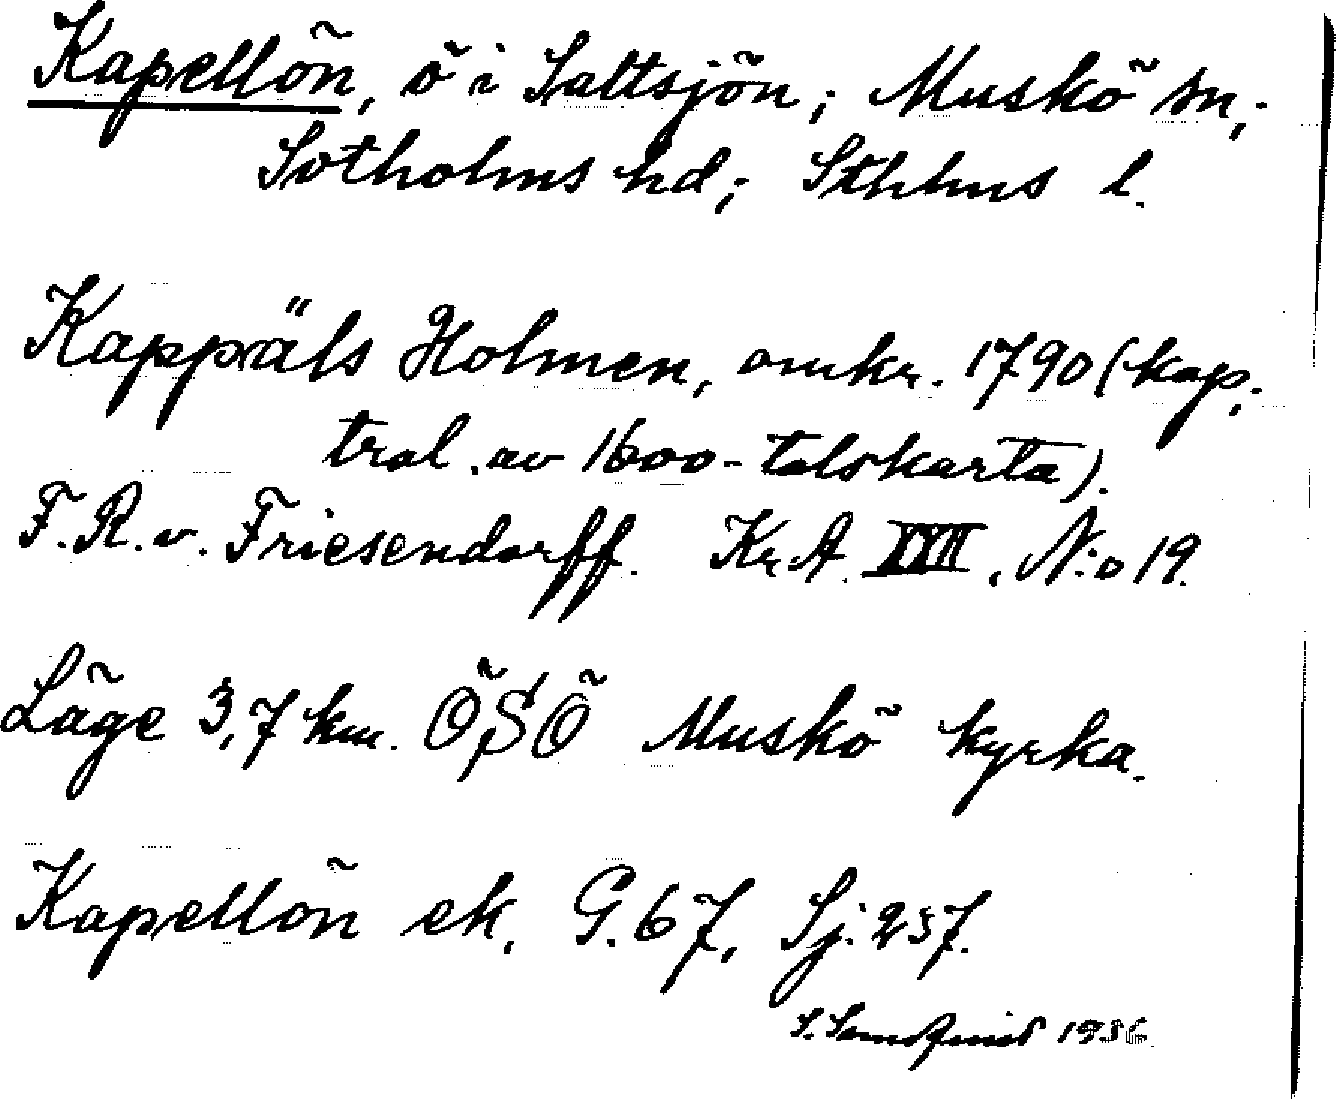 Kapellön, ö i Saltsjön; Muskö sn;
Sotholms hd; Sthlms l.
Kappäls Holmen, omkr. 1790 (kop;
tral. av 1600-talskarta).
F. R. v. Friesendorff. Kr.A. XXII, N:o 19.
Läge 3,7 km. ÖSÖ Muskö kyrka.
Kapellön ek. G. 67, Sj. 257.
S. 1936